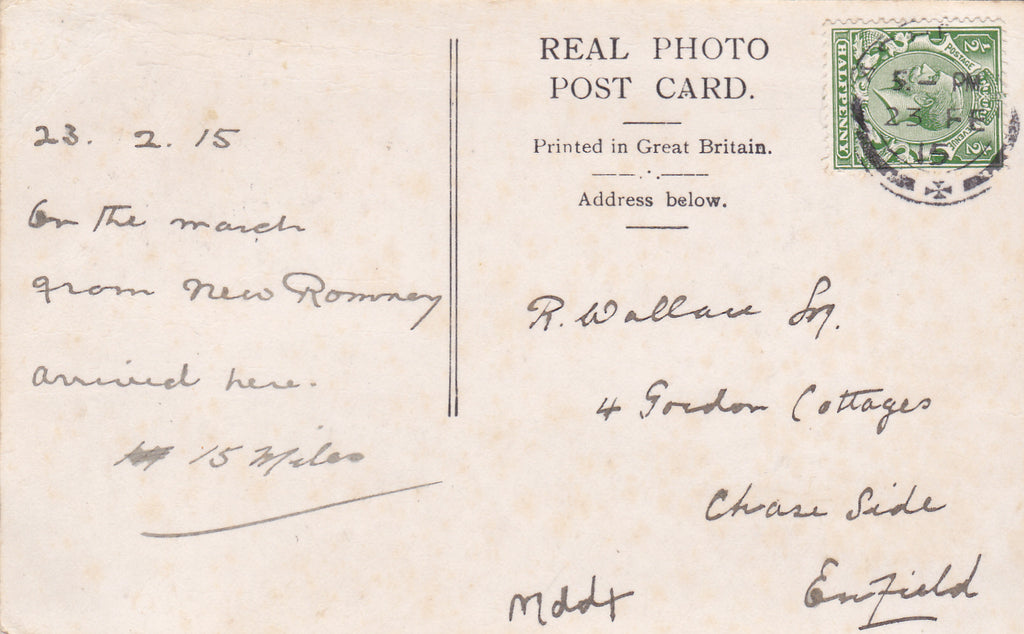 REAL PHOTO
POST CARD.
Printed in Great Britain.
Address below.
23. 2. 15
On the march
from New Romney
arrived here.
15 Miles
R. Wallace Sr.
4 Gordon Cottages
Chase Side
Enfield
Mddx
POSTAGE
HALFPENNY
1/2
1/2
5 - PM
23 FE
15